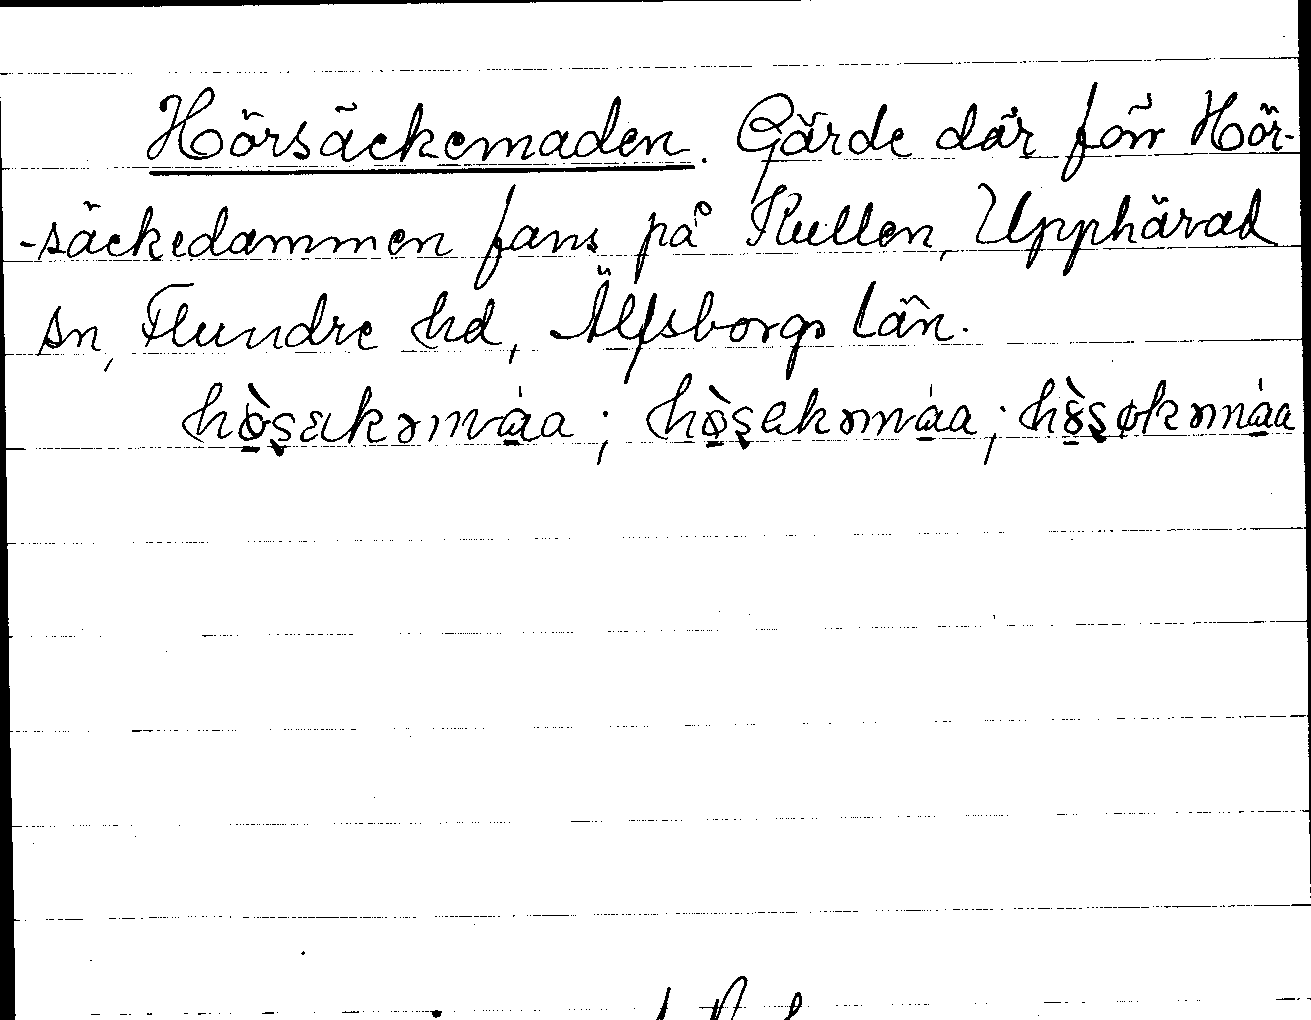 Hörsäckemaden. Gärde där förr Hör-
-säckedammen fans på Kullen, Upphärad
sn, Flundre hd, Älfsborgs län.
hò̱ʂakəmá̱a; hò̱ʂakəmá̱a; hò̱ʂøkəmá̱a